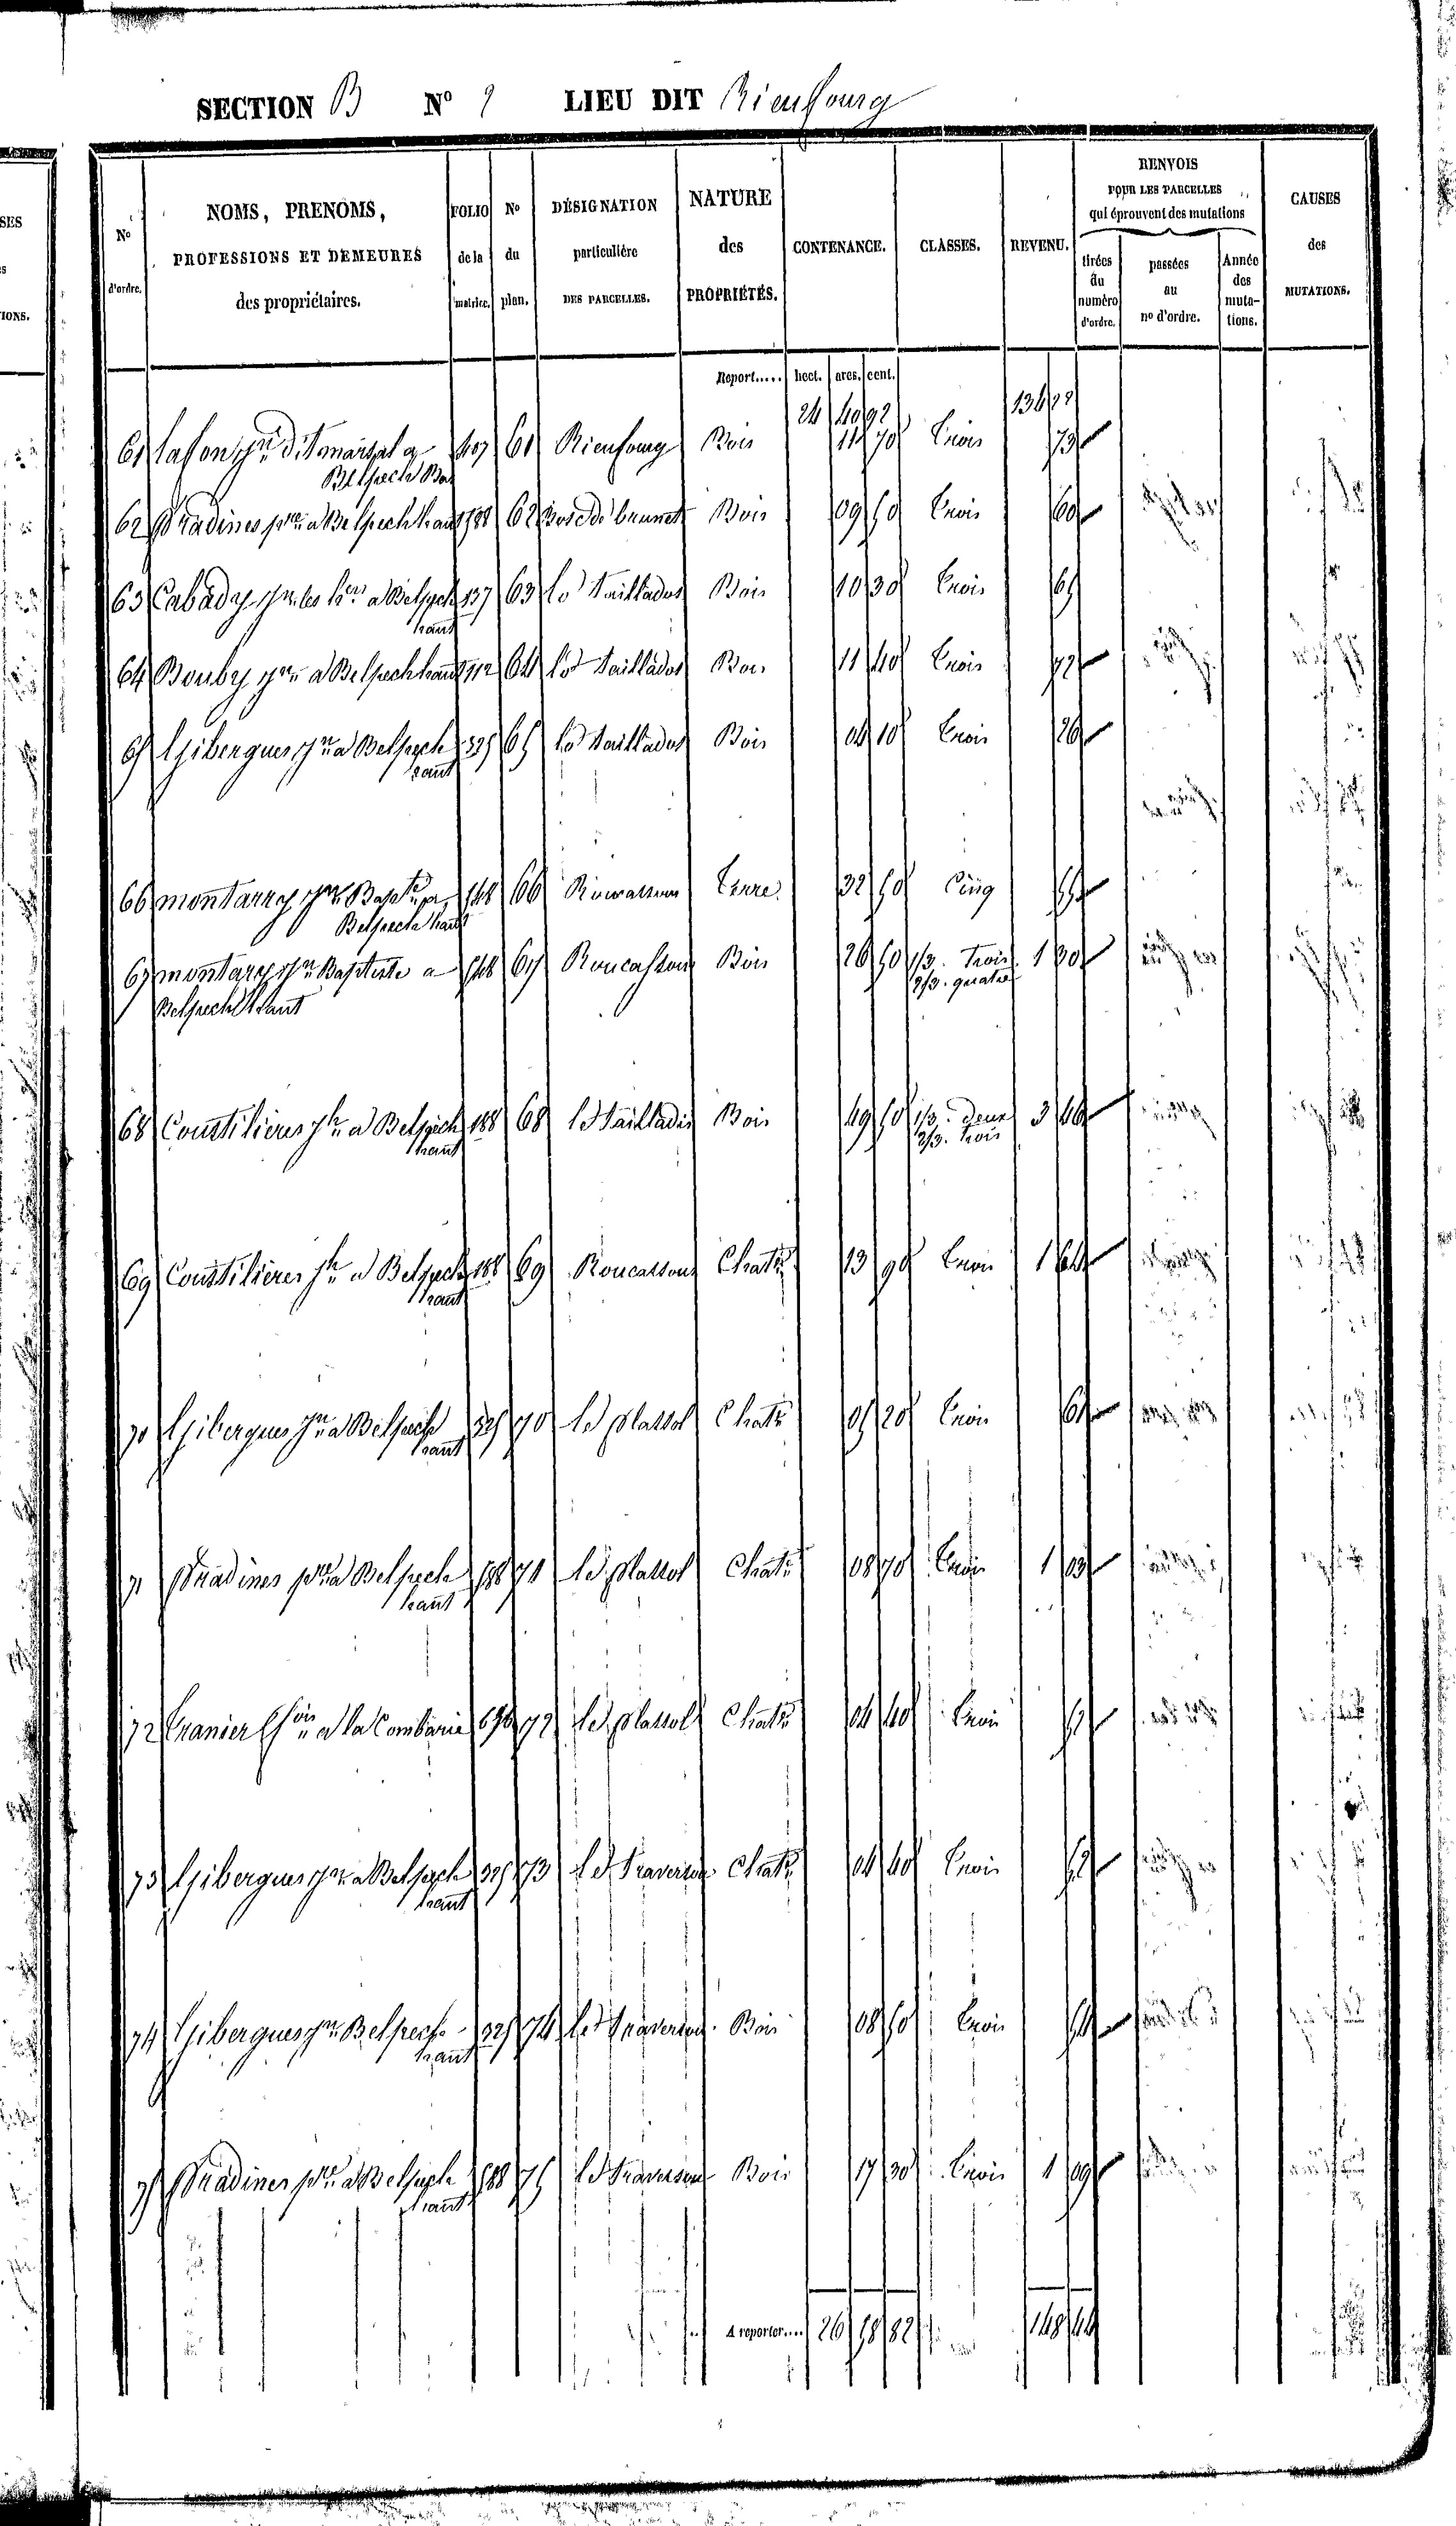 SECTION B N° 2 LIEU DIT Rienfourg
N° d'ordre.
NOMS, PRENOMS, PROFESSIONS ET DEMEURES des propriétaires.
FOLIO de la matrice.
N° du plan.
DÉSIGNATION particulière DES PARCELLES.
NATURE des PROPRIÉTÉS.
CONTENANCE.
CLASSES.
REVENU.
RENVOIS POUR LES PARCELLES qui éprouvent des mutations
tirées du numéro d'ordre.
passées au n° d'ordre.
Année des mutations.
CAUSES des MUTATIONS.
Report..... hect. ares. cent.
24 40 92 134 22
61 Lafon jn dit marsal a 407 61 Rienfourg Bois 11 70 Trois 73
Belpech Bas
62 Pradines pre a Belpech haut 588 62 Bosc de brunet Bois 09 50 Trois 60
63 Cabady jn les hers a Belpech 137 63 los Taillados Bois 10 30 Trois 65
haut
64 Bouby jn a Belpech haut 112 64 los Taillados Bois 11 40 Trois 72
65 Gibergues jn a Belpech 325 65 los Taillados Bois 04 10 Trois 26
haut
66 montarry jn Bapte a 548 66 Terre 32 50 Cinq
Belpech haut
67 montarry jn Baptiste a 548 67 Roucassou Bois 26 50 1/3. Trois 1 30
Belpech haut 2/3. quatre
68 Coustilieres jh a Belpech 188 68 Bois 49 50 1/3. deux 3 46
haut 2/3. trois
69 Coustilieres jh a Belpech 188 69 Roucassou Chatr 13 90 Trois 1 64
haut
70 Gibergues jn a Belpech 325 70 le plassol Chatr 05 20 Trois 61
haut
71 Pradines pre a Belpech 588 71 le plassol Chatr 08 70 Trois 1 03
haut
72 Tranier a la Combarie 696 72 le plassol Chatr 04 40 Trois 52
73 Gibergues jn a Belpech 325 73 Chatr 04 40 Trois 52
haut
74 Gibergues jn Belpech 325 74 Bois 08 50 Trois 54
haut
75 Pradines pre a Belpech 588 75 Bois 17 30 Trois 1 09
haut
A reporter.... 26 58 82 148 44